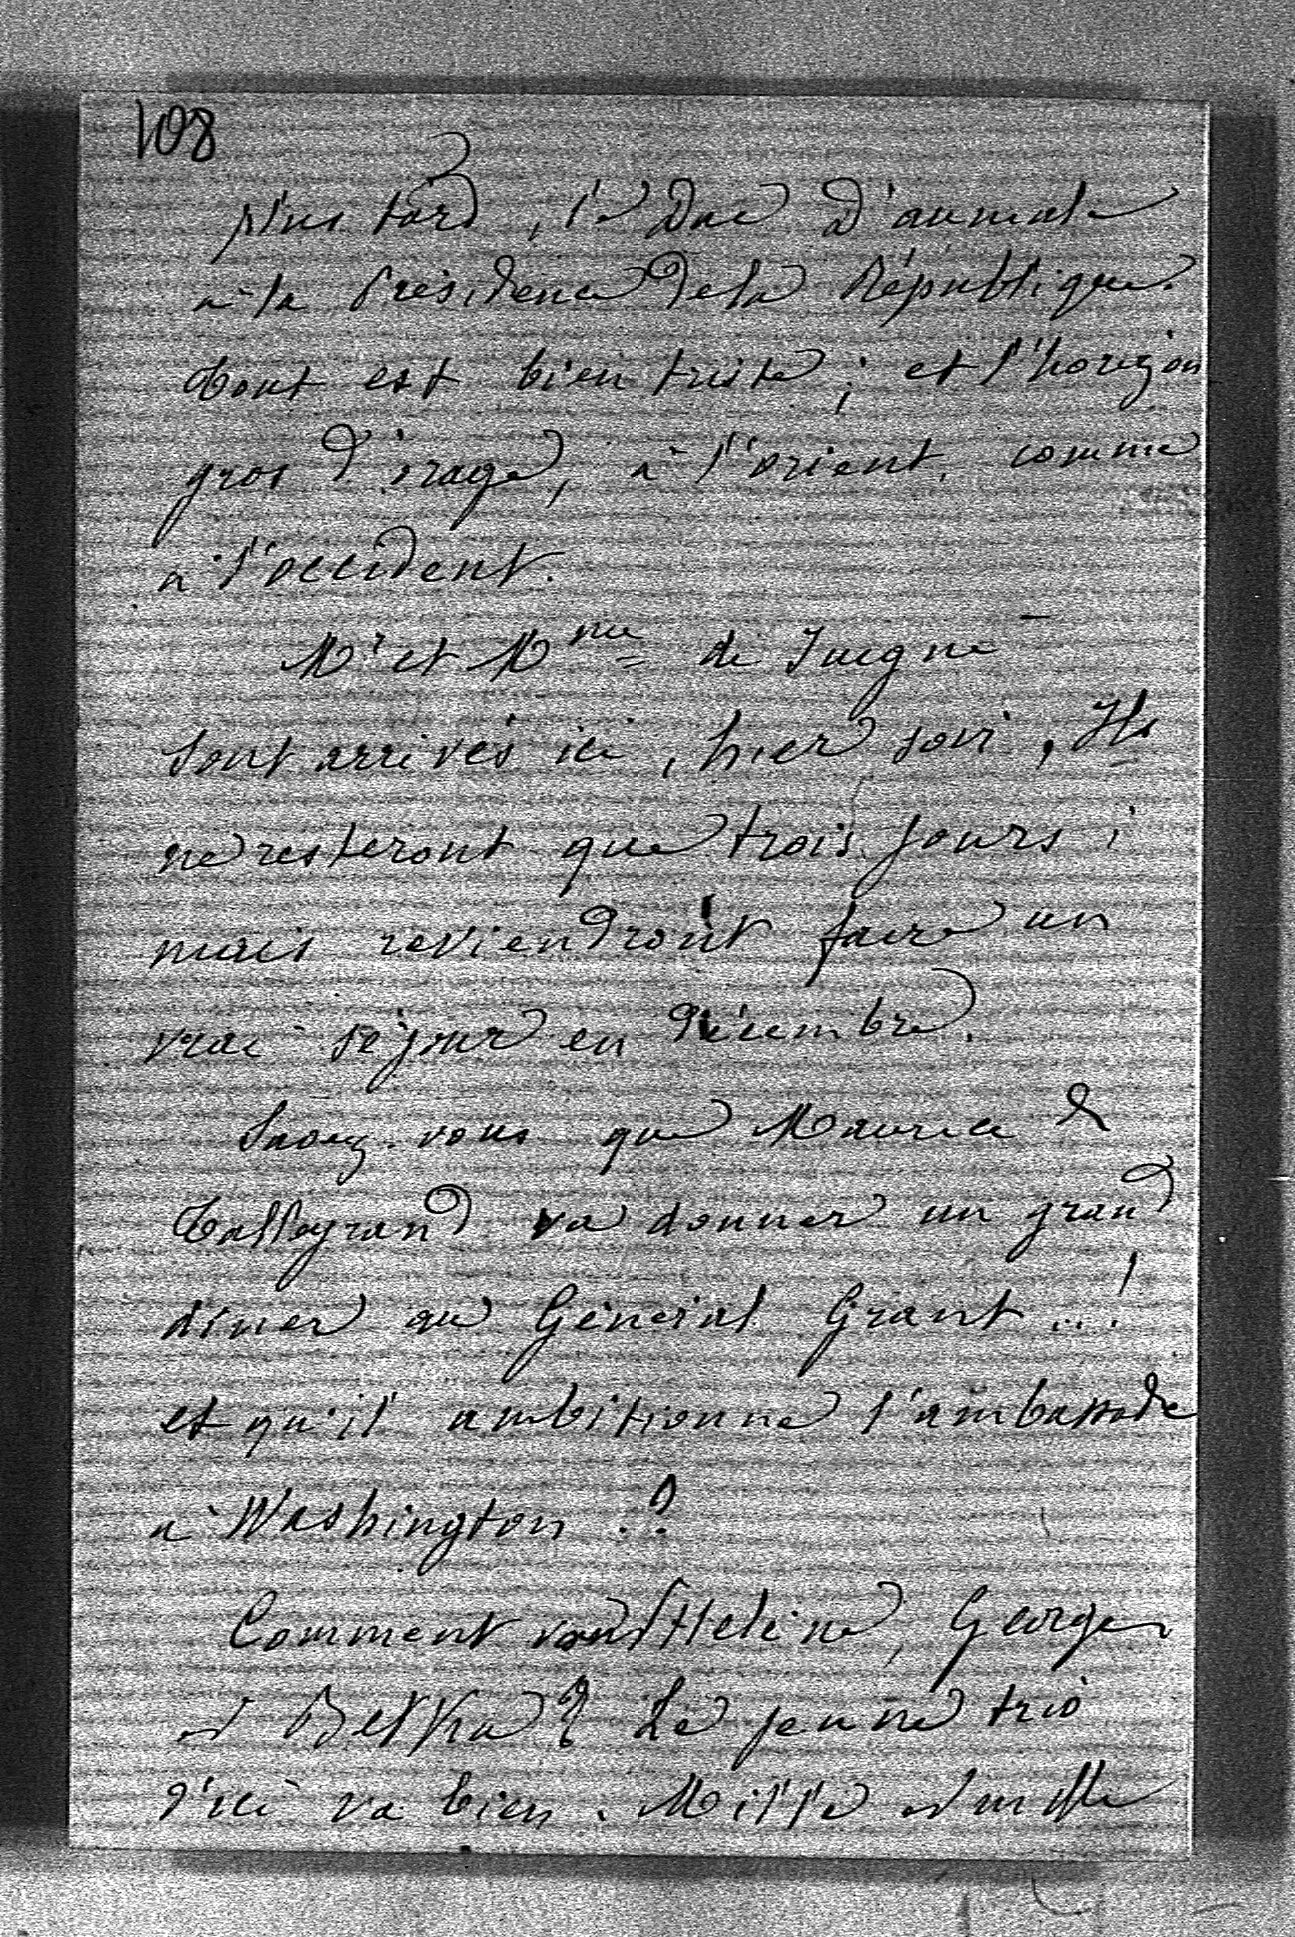 108
plus tard, le Duc d'aumale
à la Présidence de la République.
Tout est bien triste ; et l'horizon
gros d'orage, à l'orient, comme
à l'occident.
Mr et Mme de Juigné
sont arrivés ici, hier soir, Ils
ne resteront que trois jours ;
mais reviendront faire un
vrai séjour en Décembre.
Savez-vous que Maurice de
Talleyrand va donner un grand
dîner au Général Grant ...!
et qu'il ambitionne l'ambassade
à Washington .?.
Comment vont Hélène, Georges
et Betka ? Le jeune trio
d'ici va bien. Mille et mille